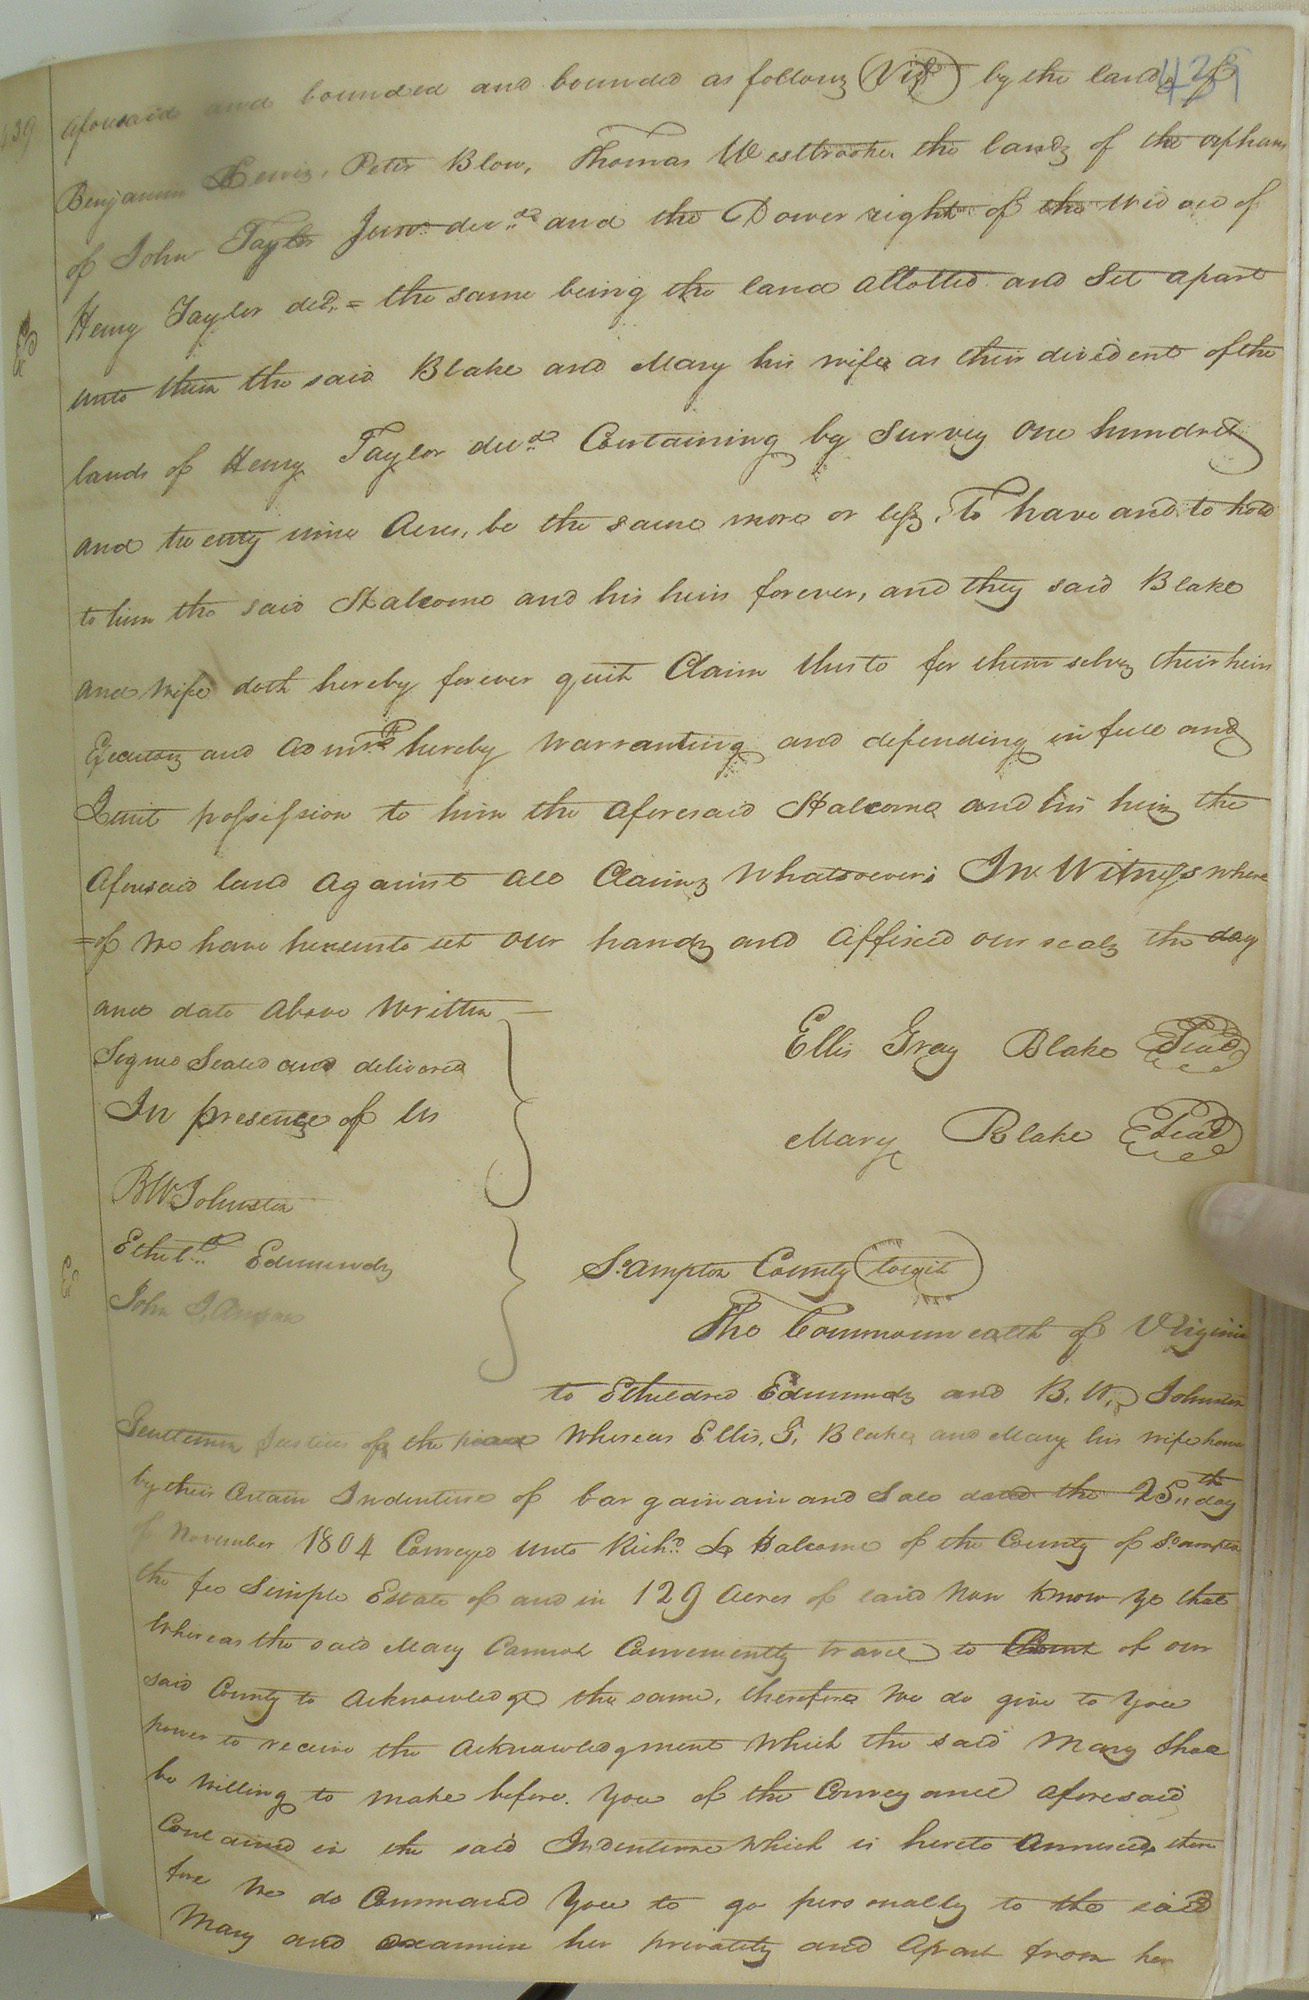 439
aforesaid and bounded and bounded as followz (Vizt) by the landz of
Benjamin Lewis, Peter Blow, Thomas Westbrooke the landz of the orphans
of John Taylor Junr. decd. and the Dower right of the Widow of
Henry Taylor decd. = the same being the land allotted and Set apart
unto them the said Blake and Mary his wife as their divident of the
lands of Henry Taylor decd. Containing by Survey One hundred
and twenty nine Acres, be the same more or less, To have and to hold
to him the said Halcome and his heirs forever, and they said Blake
and Wife doth hereby forever quit Claim thisto for them selvez their heirs
Executorz and admrs. hereby Warranting and defending in full and
Quit possession to him the aforesaid Halcome and his heirz the
Aforesaid land against all Claimz Whatsoever: In Witness where
=of We have hereunto set our handz and affixed our sealz the day
and date above Written —
Signed Sealed and delivered
In presence of Us
Ellis Gray Blake Seal
Mary Blake Seal
B W Johnston
Etheld. Edmundz
John
So.ampton County (towit)
The Commonwealth of Virginia
to Etheldred Edmundz and B. W. Johnston
Gentlemen Justices of the peace Whereas Ellis, G, Blake and Mary his wife have
by their Certain Indenture of bargainain and Sale dated the 25th day
of November 1804 Conveyed unto Richd. H Halcome of the County of So.ampton
the fee Simple Estate of and in 129 Acres of land Now Know Ye that
Whereas the said Mary Cannot Conveniently travel to Court of our
said County to Acknowledge the same, therefore We do give to You
power to receive the Acknowledgment Which the said Mary Shall
be Willing to make before You of the Conveyance aforesaid
Contained in the said Indenture Which is hereto annexed, there
fore We do Command You to go personally to the said
Mary and examine her privately and Apart from her